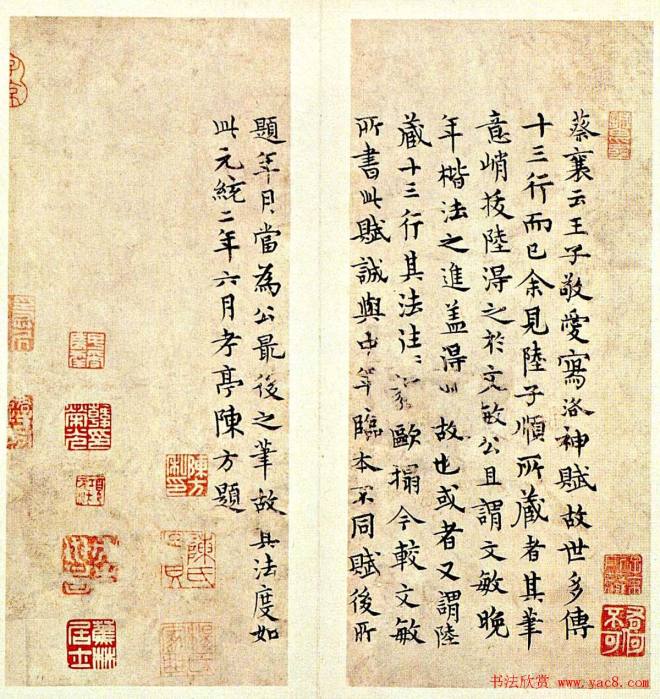 蔡襄云王子敬愛寫洛神賦故世多傳
十三行而已余見陸子順所藏者其筆
意峭拔陸得之於文敏公且謂文敏晚
年楷法之進盖得此故也或者又謂陸
藏十三行其法往〻歐搨今較文敏
所書此賦誠與中年臨本不同賦後所
題年月當為公最後之筆故其法度如
此元統二年六月孝亭陳方題
陳方
陳氏
書法欣賞 www.yac8.com